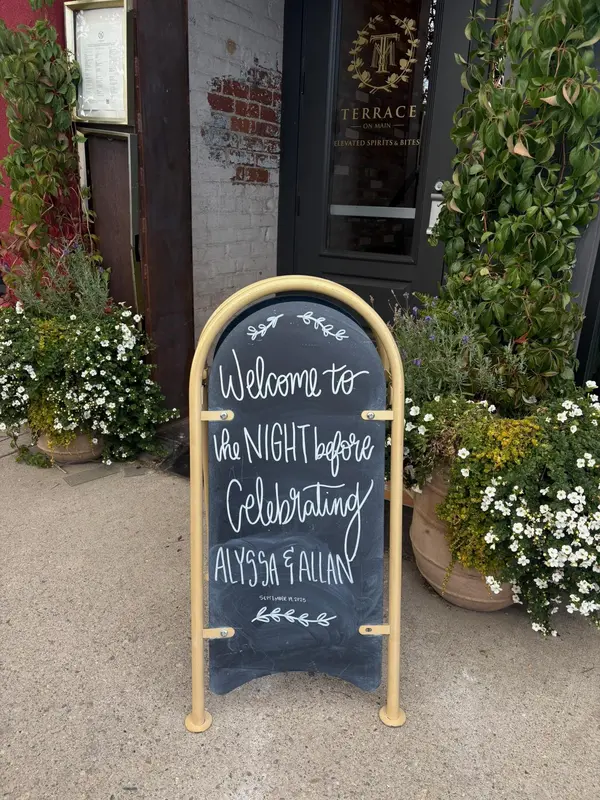 TERRACE
ON MAIN
ELEVATED SPIRITS & BITES
Welcome to
the NIGHT before
Celebrating
ALYSSA & ALLAN
SEPTEMBER 19, 2025